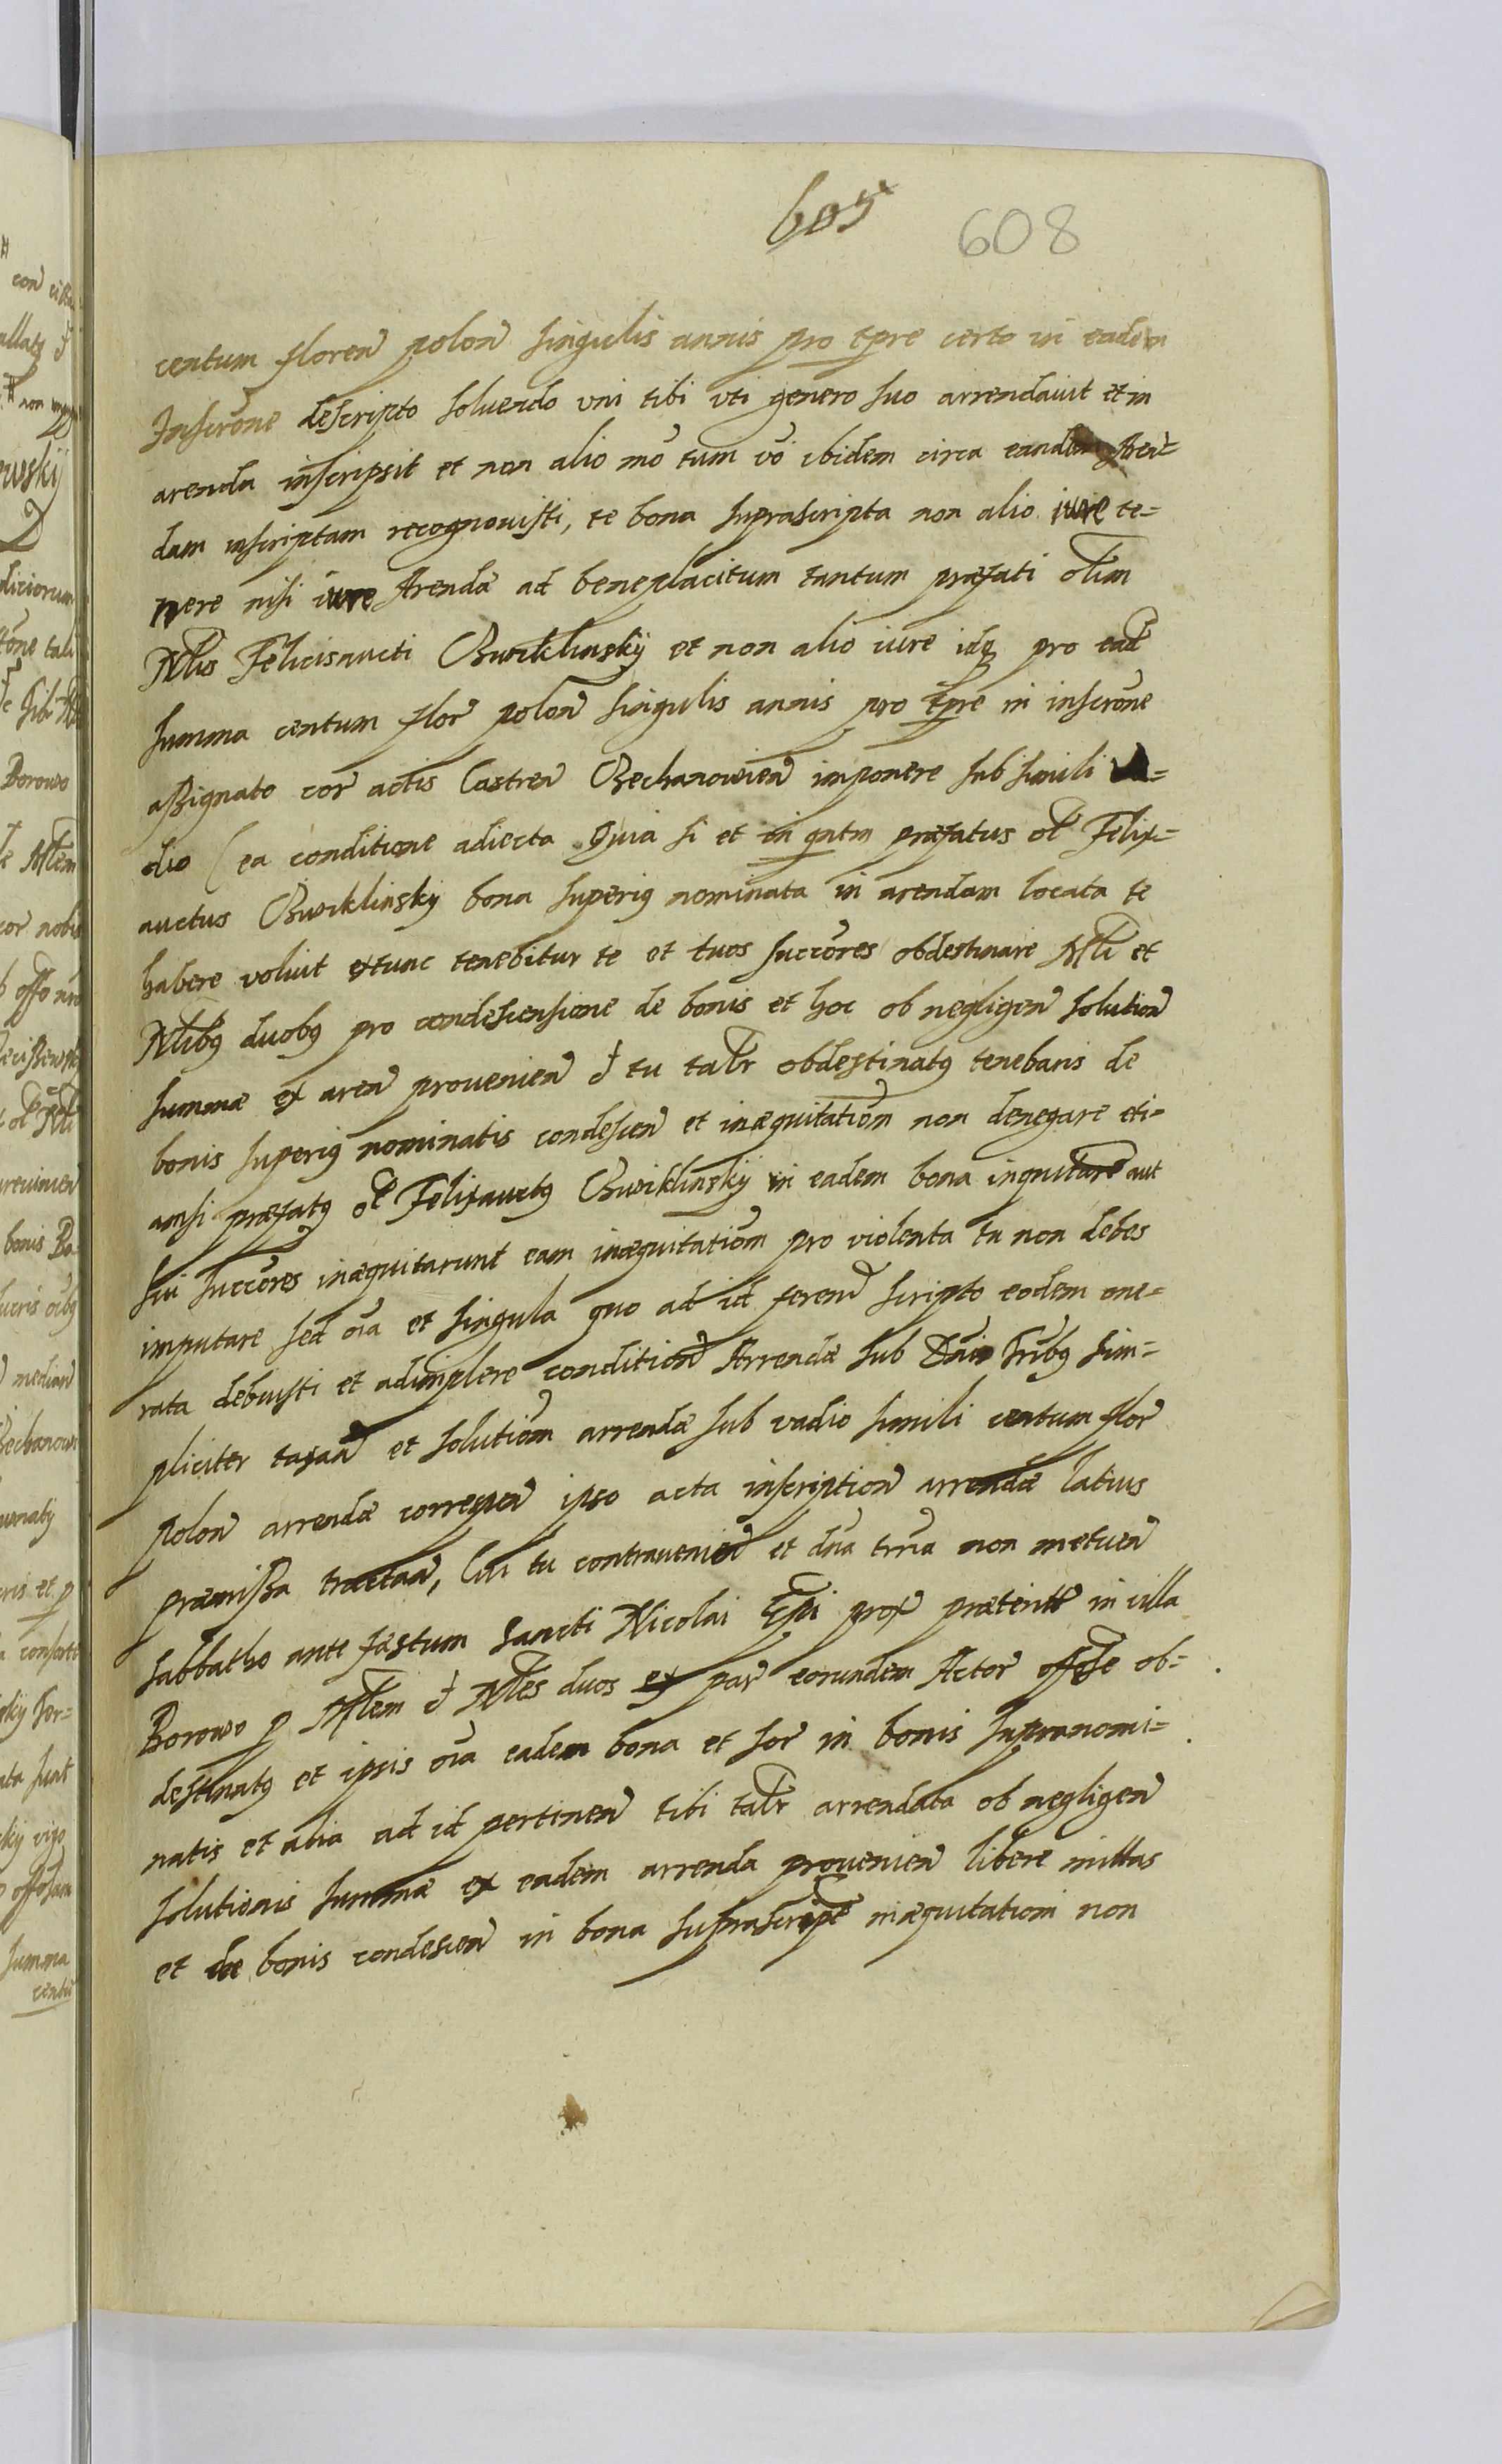 605 608
centum floren polon singulis annis pro tpre certo in eadem
Inscrone descripto soluendo vni tibi vti genero suo arrendauit et in
arenda inscripsit et non alio mo tum vo ibidem circa eandem Aren-
dam inscriptam recognouisti, te bona suprascripta non alio iure te-
nere nisi iure Arendæ ad beneplacitum tantum præfati olim
Nlis Felicisaucti Cwiklinskÿ et non alio iure idq pro ead
summa centum flor polon singulis annis pro tpre in inscrone
assignato cor actis Castren Cechanowien imponere sub simili va-
dio (ea conditione adiecta Quia si et in qntm præfatus ol Felix-
auctus Cwiklinsky bona superiq nominata in arendam locata te
habere voluit extunc tenebitur te et tuos succores obdestinare Mli et
Nlibq duobq pro condescensione de bonis et hoc ob negligen solution
summæ ex aren prouenien et tu talr obdestinatq tenebaris de
bonis superiq nominatis condescen et inæquitatiom non denegare eti-
amsi præfatq ol Felixauctq Cwiklinskÿ in eadem bona inquitare aut
sui succores inæquitarunt eam inæquitatiom pro violenta tu non debes
imputare sed oia et singula quo ad id feren scripto eodem one-
rata debuisti et adimplere condition Arrendæ sub Dnis tribq sim-
pliciter taxan et solutiom arrendæ sub vadio simili centum flor
polon arrendæ correspen ipso acta inscription arrendæ latius
præmissa tractan, Cui tu contrauenien et dna trria non metuen
sabbatho ante fæstum Sancti Nicolai Epi prox præterit in villa
Borowo p Mlem et Nles duos ex par eorundem Actor offose ob-
destinatq et ipsis oia eadem bona et sor in bonis supranomi-
natis et alia ad id pertinen tibi talr arrendata ob negligen
solutionis summæ ex eadem arrenda prouenien libere mittas
et de bonis condescen in bona suprascript inæquitatiom non